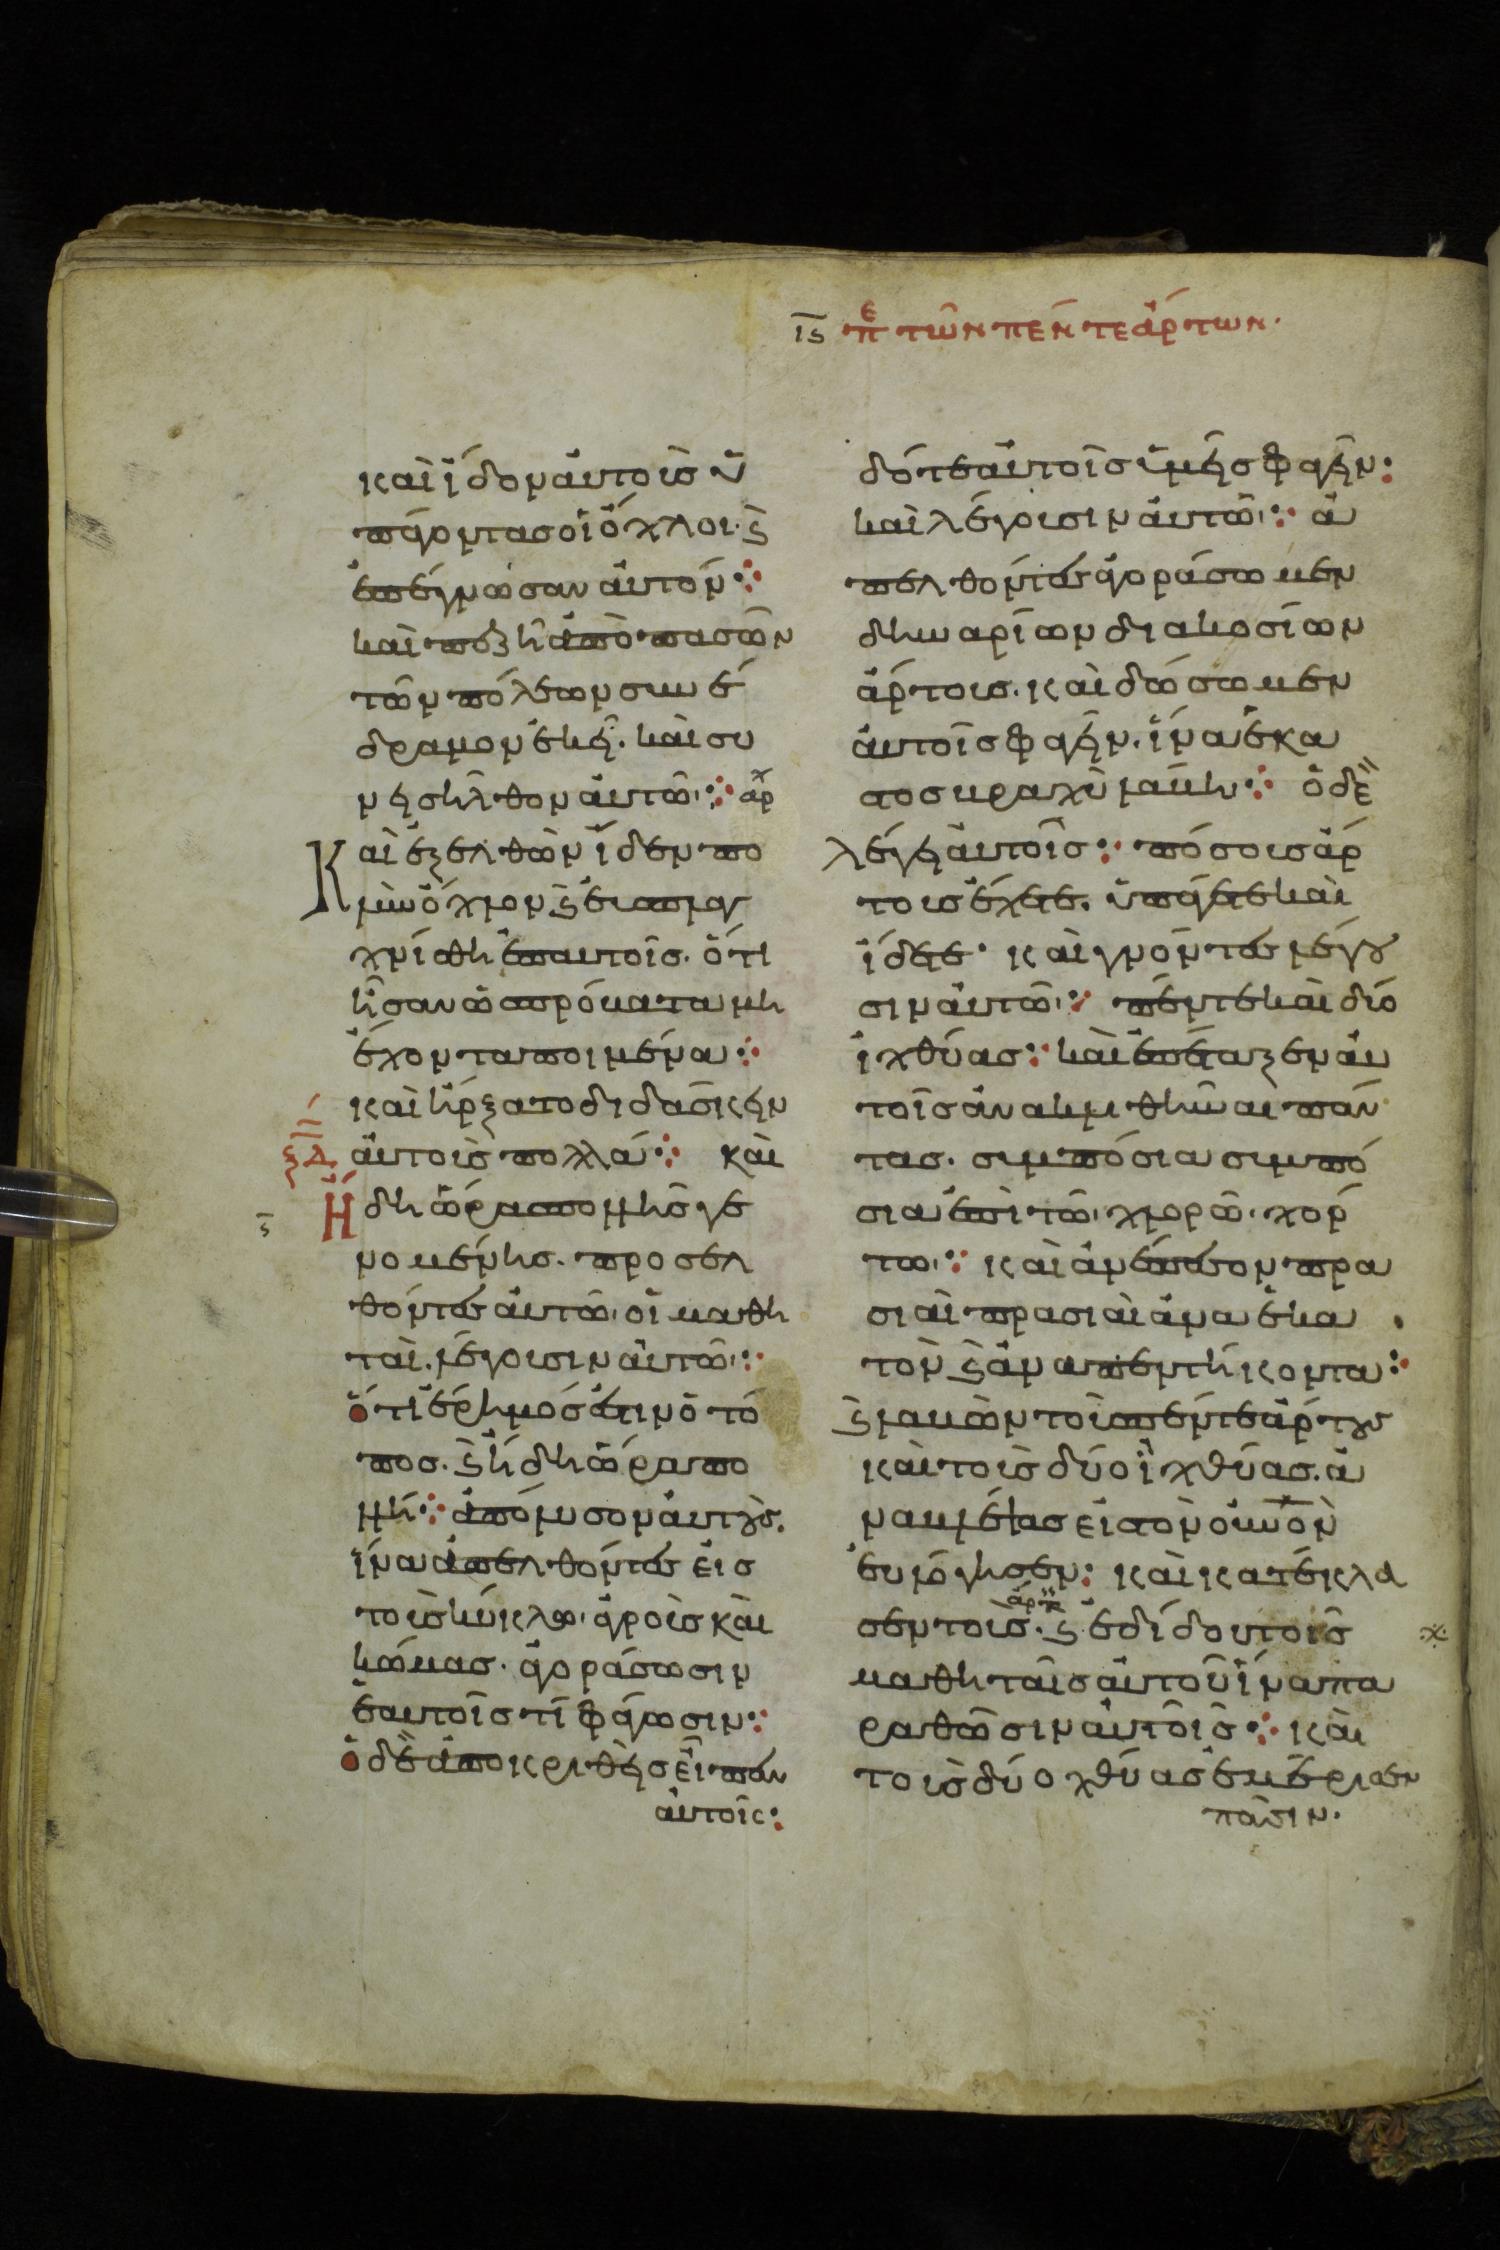 ις πε τῶν πέντε ἄρτων.
καὶ ἴδον αὐτοὺς ὑ
πάγοντασ οἱ ὄχλοι. ϗ
ἐπέγνωσαν αὐτόν:
καὶ πεζῆ ἀπὸ πασῶν
τῶν πόλεων συνέ
δραμον ἐκεῖ. καὶ συ
νεισῆλθον αὐτῶ: αρχ
Και ἐξελθὼν ἴδεν πο
λὺν ὄχλον ϗ ἐσπλαγ
χνίσθη ἐπ αυτοῖσ. ὅτι
ἦσαν ὡσ πρόβατα μὴ
ἔχοντα ποιμένα:
καὶ ἤρξατο διδάσκειν
αὐτοὺς πολλά: καὶ
ξδ
ς Ἤδη ὥρασ πολλῆσ γε
νομένησ. προσελ
θόντεσ αὐτῶ οἱ μαθη
ταὶ. λέγουσιν αὐτῶ:
ὅτι ἔρημόσ ἐστιν ὁ τό
ποσ. ϗ ἤδη ὥρα πο
λλή: ἀπόλυσον αὐτούσ.
ἵνα ἀπελθόντεσ εἰσ
τοὺσ κύκλω ἀγροὺσ καὶ
κώμασ. ἀγοράσωσιν
ἑαυτοῖσ τί φάγωσιν:
ὁ δὲ ἀποκριθεὶσ εἶπεν
αὐτοῖς:
δότε αὐτοῖσ ὑμεῖσ φαγεῖν:
καὶ λέγουσιν αὐτῶ: ἀ
πελθόντεσ ἀγοράσωμεν
δηναρίων διακοσίων
ἄρτουσ. καὶ δώσωμεν
αὐτοῖσ φαγεῖν. ἵνα ἕκα
στοσ βραχὺ λάβη: ὁ δὲ
λέγει αὐτοῖσ: πόσουσ ἄρ
τουσ ἔχετε. ὑπάγετε καὶ
ἴδετε. καὶ γνόντεσ λέγου
σιν αὐτῶ: πέντε καὶ δύο
ἰχθύασ: καὶ ἐπέταξεν αὐ
τοῖσ ἀνακλιθῆναι πάν
τασ. συμπόσια συμπό
σια ἐπὶ τῶ χλορῶ χόρ
τω: καὶ ἀνέπεσον πρα
σιαὶ πρασιαὶ ἀνα ἑκα
τὸν ϗ ἀνα πεντήκοντα:
ϗ λαβὼν τοὺσ πέντε ἄρτουσ
καὶ τοὺσ δύο ἰχθύασ. ἀ
ναβλέψασ εἰσ τὸν οὐνὸν
ἐυλόγησεν: καὶ κατέκλα
σεν τοὺσ. ϗ ἐδίδου τοῖσ
ἄρτ
μαθηταῖσ αὐτοῦ ἵνα πα
ραθῶσιν αὐτοῖσ: καὶ
τοὺσ δύο χθύασ ἐμέρισεν
πᾶσιν.